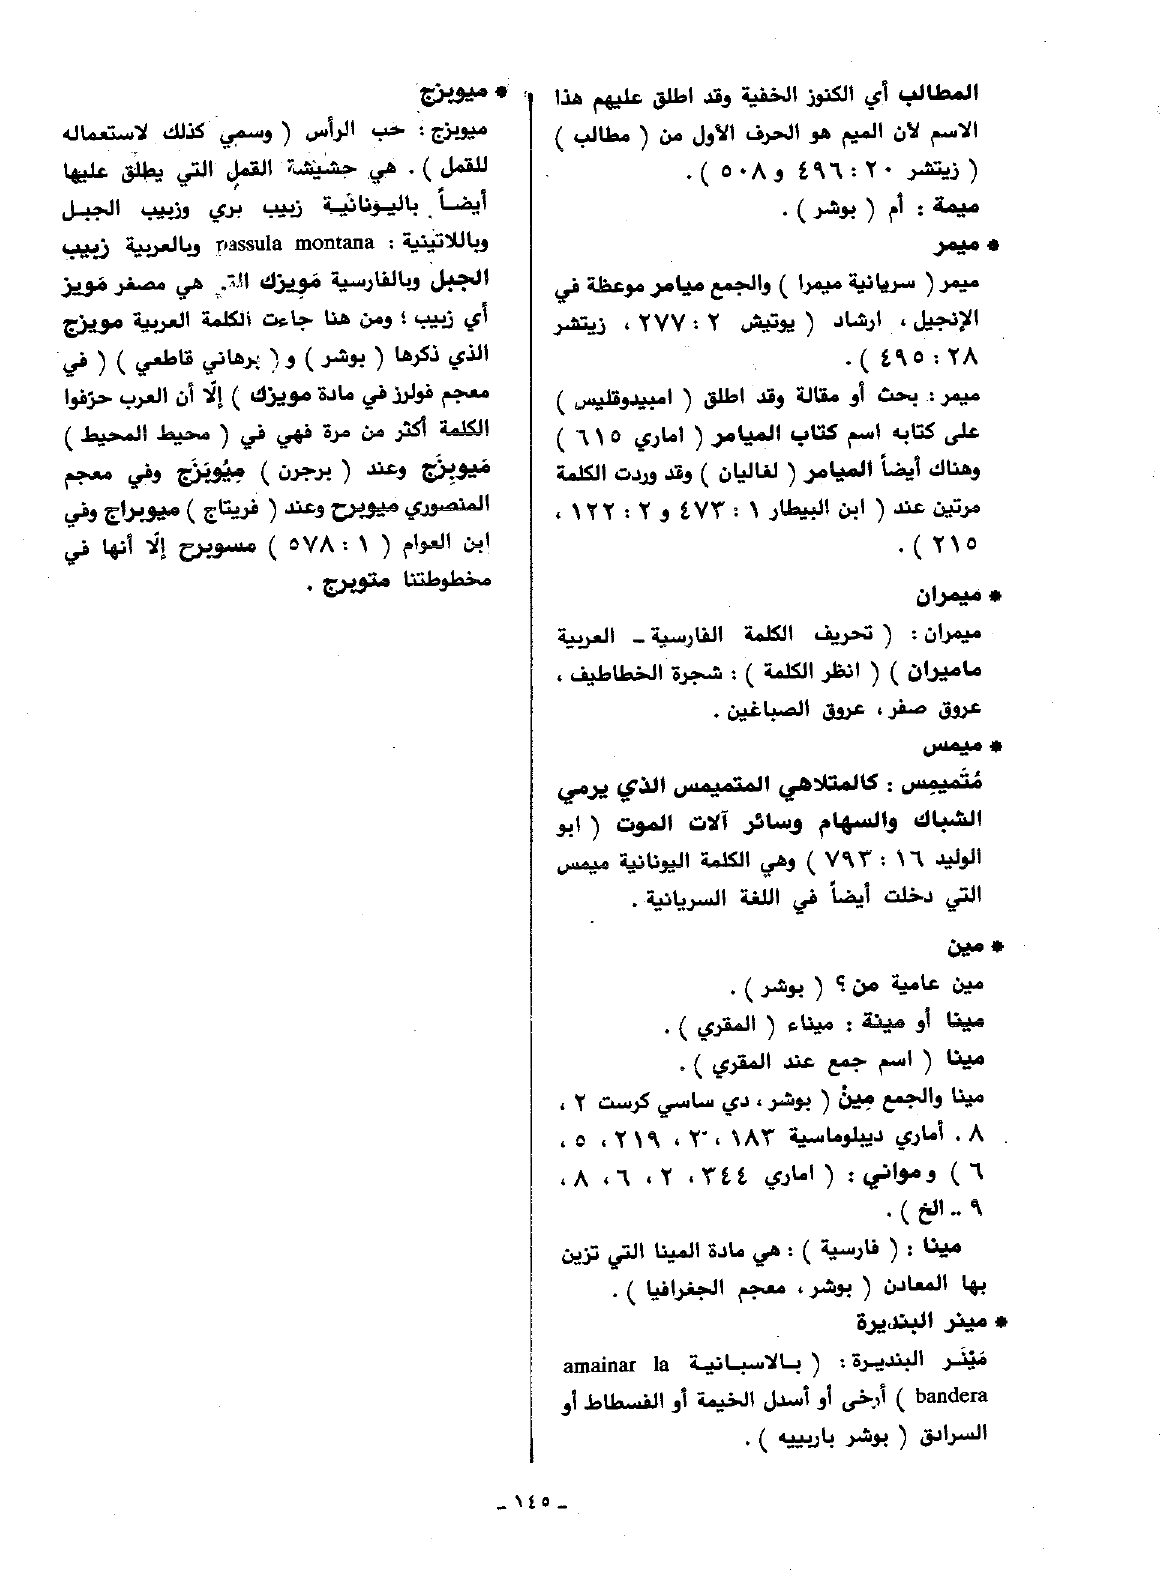 المطالب أي الكنوز الخفية وقد اطلق عليهم هذا
الاسم لأن الميم هو الحرف الأول من ( مطالب )
( زيتشر ٢٠ : ٤٩٦ و ٥٠٨ ) .
ميمة : أم ( بوشر ) .
* ميمر
ميمر ( سريانية ميمرا ) والجمع ميامر موعظة في
الإنجيل ، ارشاد ( يوتيش ٢ : ٢٧٧ ، زيتشر
٢٨ : ٤٩٥ ) .
ميمر : بحث أو مقالة وقد اطلق ( امبيدوقليس )
على كتابه اسم كتاب الميامر ( اماري ٦١٥ )
وهناك أيضاً الميامر ( لغاليان ) وقد وردت الكلمة
مرتين عند ( ابن البيطار ١ : ٤٧٣ و ٢ : ١٢٢ ،
٢١٥ ) .
* ميمران
ميمران : ( تحريف الكلمة الفارسية ـ العربية
ماميران ) ( انظر الكلمة ) : شجرة الخطاطيف ،
عروق صفر ، عروق الصباغين .
* ميمس
مُتَميمِس : كالمتلاهي المتميمس الذي يرمي
الشباك والسهام وسائر آلات الموت ( ابو
الوليد ١٦ : ٧٩٣ ) وهي الكلمة اليونانية ميمس
التي دخلت أيضاً في اللغة السريانية .
* مين
مين عامية من ؟ ( بوشر ) .
مينا أو مينة : ميناء ( المقري ) .
مينا ( اسم جمع عند المقري ) .
مينا والجمع مِينْ ( بوشر ، دي ساسي كرست ٢ ،
٨ . أماري ديبلوماسية ١٨٣ ، ٢ ، ٢١٩ ، ٥ ،
٦ ) ومواني : ( اماري ٣٤٤ ، ٢ ، ٦ ، ٨ ،
٩ .. الخ ) .
مينا : ( فارسية ) : هي مادة المينا التي تزين
بها المعادن ( بوشر ، معجم الجغرافيا ) .
* مينر البنديرة
مَيْنَر البنديرة : ( بالاسبانية amainar la
bandera ) أرخى أو أسدل الخيمة أو الفسطاط أو
السرادق ( بوشر بارييه ) .
* ميويزج
ميويزج : حَب الرأس ( وسمي كذلك لاستعماله
للقمل ) . هي حشيشة القمل التي يطلق عليها
أيضاً باليونانية زبيب بري وزبيب الجبل
وباللاتينية : passula montana وبالعربية زبيب
الجبل وبالفارسية مَويزك التي هي مصغر مَويز
أي زبيب ؛ ومن هنا جاءت الكلمة العربية مويزج
الذي ذكرها ( بوشر ) و ( برهاني قاطعي ) ( في
معجم فولرز في مادة مويزك ) إلّا أن العرب حرّفوا
الكلمة أكثر من مرة فهي في ( محيط المحيط )
مَيوِيزَج وعند ( برجرن ) مِيُويَزَج وفي معجم
المنصوري ميويرح وعند ( فريتاج ) ميويراج وفي
ابن العوام ( ١ : ٥٧٨ ) مسويرح إلّا أنها في
مخطوطتنا متويرج .
ـ ١٤٥ ـ